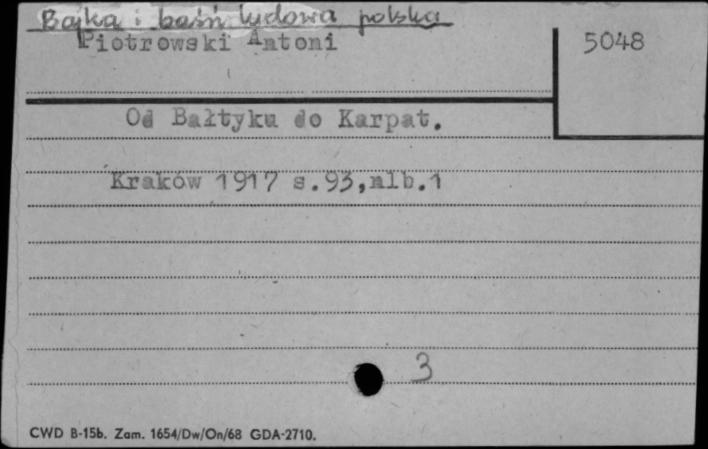 Bajka i baśń ludowa polska
Piotrowski Antoni
5048
Od Bałtyku do Karpat.
Kraków 1917 s.93,nlb.1
3
CWD B-15b. Zam. 1654/Dw/On/68 GDA-2710.